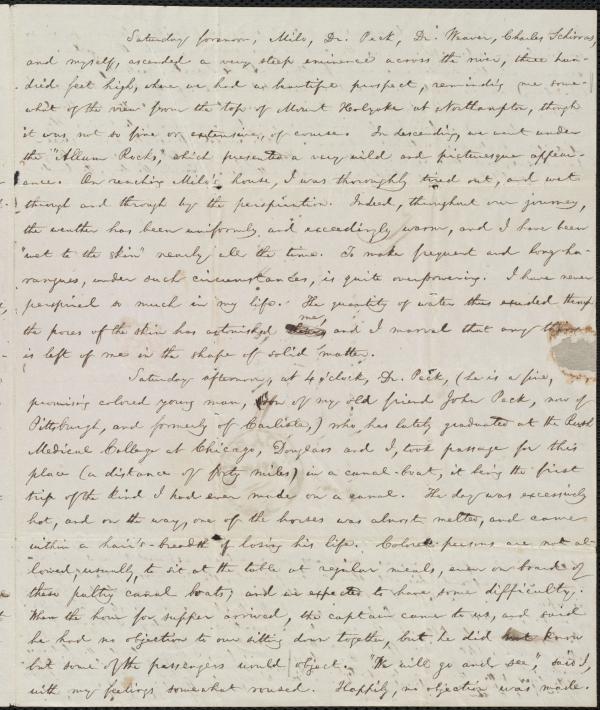 Saturday forenoon, Milo, Dr. Peck, Dr. Weaver, Charles Schirras,
and myself, ascended a very steep eminence across the river, three hun-
dred feet high, where we had a beautiful prospect, reminding me some-
what of the view from the top of Mount Holyoke at Northampton, though
it was not so fine or extensive, of course. In descending, we went under
the "Allum Rocks," which presented a very wild and picturesque appear-
ance. On reaching Milo's house, I was thoroughly tired out, and wet
through and through by the perspiration. Indeed, throughout our journey,
the weather has been uniformly and exceedingly warm, and I have been
"wet to the skin" nearly all the time. To make frequent and long ha-
rangues, under such circumstances, is quite overpowering. I have never
perspired so much in my life. The quantity of water thus exuded through
the pores of the skin has astonished me, and I marvel that any
is left of me in the shape of solid matter.
Saturday afternoon, at 4 o'clock, Dr. Peck, (he is a fine,
promising colored young man, son of my old friend John Peck, now of
Pittsburgh, and formerly of Carlisle,) who has lately graduated at the Rush
Medical College at Chicago, Douglass and I, took passage for this
place (a distance of forty miles) in a canal-boat, it being the first
trip of the kind I had ever made on a canal. The day was excessively
hot, and on the way, one of the horses was almost melted, and came
within a hair's-breadth of losing his life. Colored persons are not al-
lowed, usually, to sit at the table at regular meals, even on board of
these paltry canal boats; and we expected to have some difficulty.
When the hour for supper arrived, the captain came to us, and said
he had no objection to our sitting down together, but he did not know
but some of the passengers would object. "We will go and see," said I,
with my feelings somewhat roused. Happily, no objection was made.